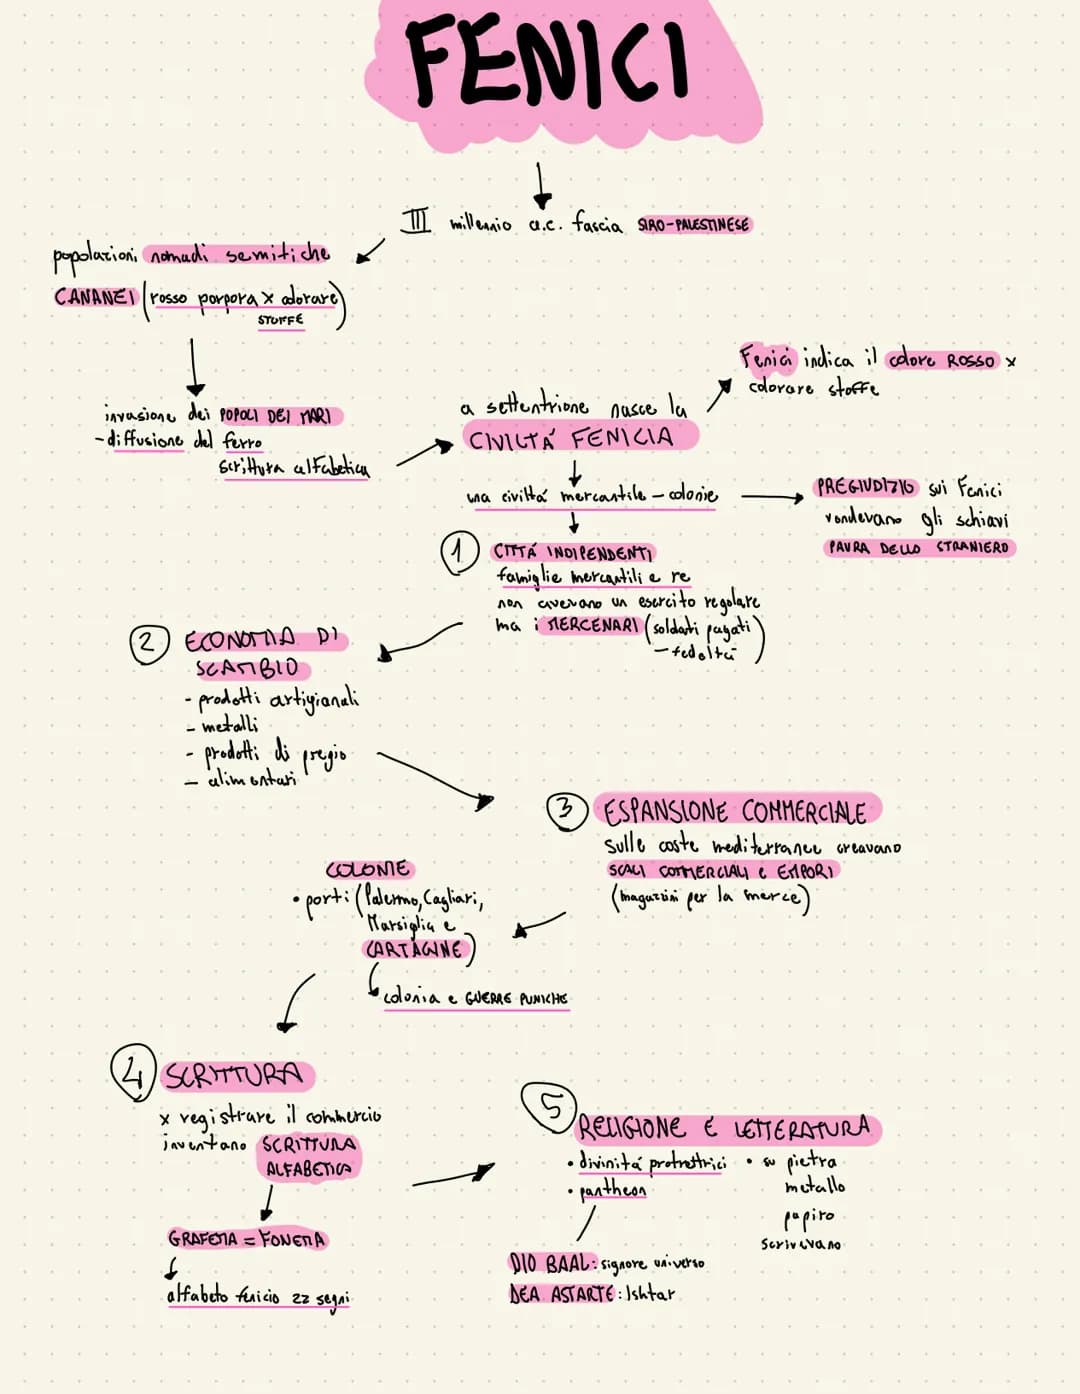 FENICI
III millennio a.c. fascia SIRO-PALESTINESE
popolazioni nomadi semitiche
CANANEI (rosso porpora x colorare)
STOFFE
invasione dei POPOLI DEI MARI
-diffusione del ferro
scrittura alfabetica
a settentrione nasce la
CIVILTÁ FENICIA
Fenici indica il colore ROSSO x
colorare stoffe
una civiltá mercantile - colonie
PREGIUDIZIO sui Fenici
vendevano gli schiavi
PAURA DELLO STRANIERO
1 CITTÁ INDIPENDENTI
famiglie mercantili e re
non avevano un esercito regolare
ma i MERCENARI (soldati pagati)
- fedeltá
2 ECONOMIA DI
SCAMBIO
- prodotti artigianali
- metalli
- prodotti di pregio
- alimentari
3 ESPANSIONE COMMERCIALE
sulle coste mediterranee creavano
SCALI COMMERCIALI e EMPORI
(magazzini per la merce)
COLONIE
• porti (Palermo, Cagliari,
Marsiglia e
CARTAGINE)
colonia e GUERRE PUNICHE
4 SCRITTURA
x registrare il commercio
inventano SCRITTURA
ALFABETICA
GRAFEMA = FONEMA
alfabeto fenicio 22 segni
5 RELIGIONE E LETTERATURA
• divinitá protrettrici
• pantheon
DIO BAAL: signore universo
DEA ASTARTE: Ishtar
• su pietra
metallo
papiro
scrivevano